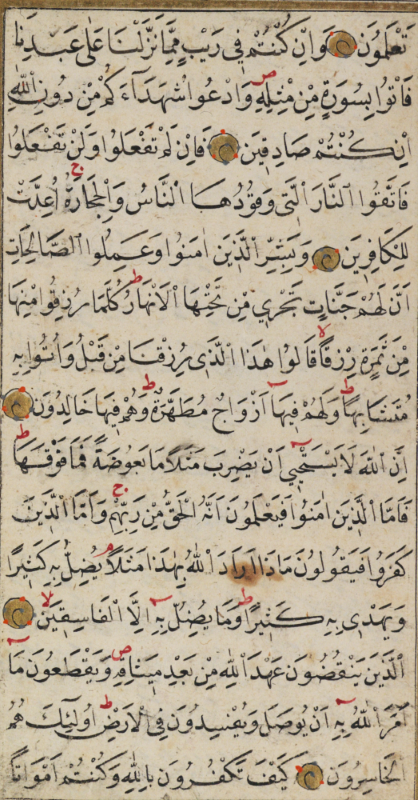 تَعْلَمُونَ وَاِنْ كُنْتُمْ فِي رَيْبٍ مِمَّا نَزَّلْنَا عَلٰى عَبْدِنَا
فَاْتُوا بِسُورَةٍ مِنْ مِثْلِهِ وَادْعُوا شُهَدَاءَكُمْ مِنْ دُونِ اللّٰهِ
اِنْ كُنْتُمْ صَادِقِينَ فَاِنْ لَمْ تَفْعَلُوا وَلَنْ تَفْعَلُوا
فَاتَّقُوا النَّارَ الَّتِي وَقُودُهَا النَّاسُ وَالْحِجَارَةُ اُعِدَّتْ
لِلْكَافِرِينَ وَبَشِّرِ الَّذِينَ اٰمَنُوا وَعَمِلُوا الصَّالِحَاتِ
اَنَّ لَهُمْ جَنَّاتٍ تَجْرِي مِنْ تَحْتِهَا الْاَنْهَارُ كُلَّمَا رُزِقُوا مِنْهَا
مِنْ ثَمَرَةٍ رِزْقًا قَالُوا هٰذَا الَّذِي رُزِقْنَا مِنْ قَبْلُ وَاُتُوا بِهِ
مُتَشَابِهًا وَلَهُمْ فِيهَا اَزْوَاجٌ مُطَهَّرَةٌ وَهُمْ فِيهَا خَالِدُونَ
اِنَّ اللّٰهَ لَا يَسْتَحْيِي اَنْ يَضْرِبَ مَثَلًا مَا بَعُوضَةً فَمَا فَوْقَهَا
فَاَمَّا الَّذِينَ اٰمَنُوا فَيَعْلَمُونَ اَنَّهُ الْحَقُّ مِنْ رَبِّهِمْ وَاَمَّا الَّذِينَ
كَفَرُوا فَيَقُولُونَ مَاذَا اَرَادَ اللّٰهُ بِهٰذَا مَثَلًا يُضِلُّ بِهِ كَثِيرًا
وَيَهْدِي بِهِ كَثِيرًا وَمَا يُضِلُّ بِهِ اِلَّا الْفَاسِقِينَ
الَّذِينَ يَنْقُضُونَ عَهْدَ اللّٰهِ مِنْ بَعْدِ مِيثَاقِهِ وَيَقْطَعُونَ مَا
اَمَرَ اللّٰهُ بِهِ اَنْ يُوصَلَ وَيُفْسِدُونَ فِي الْاَرْضِ اُولٰئِكَ هُمُ
الْخَاسِرُونَ كَيْفَ تَكْفُرُونَ بِاللّٰهِ وَكُنْتُمْ اَمْوَاتًا